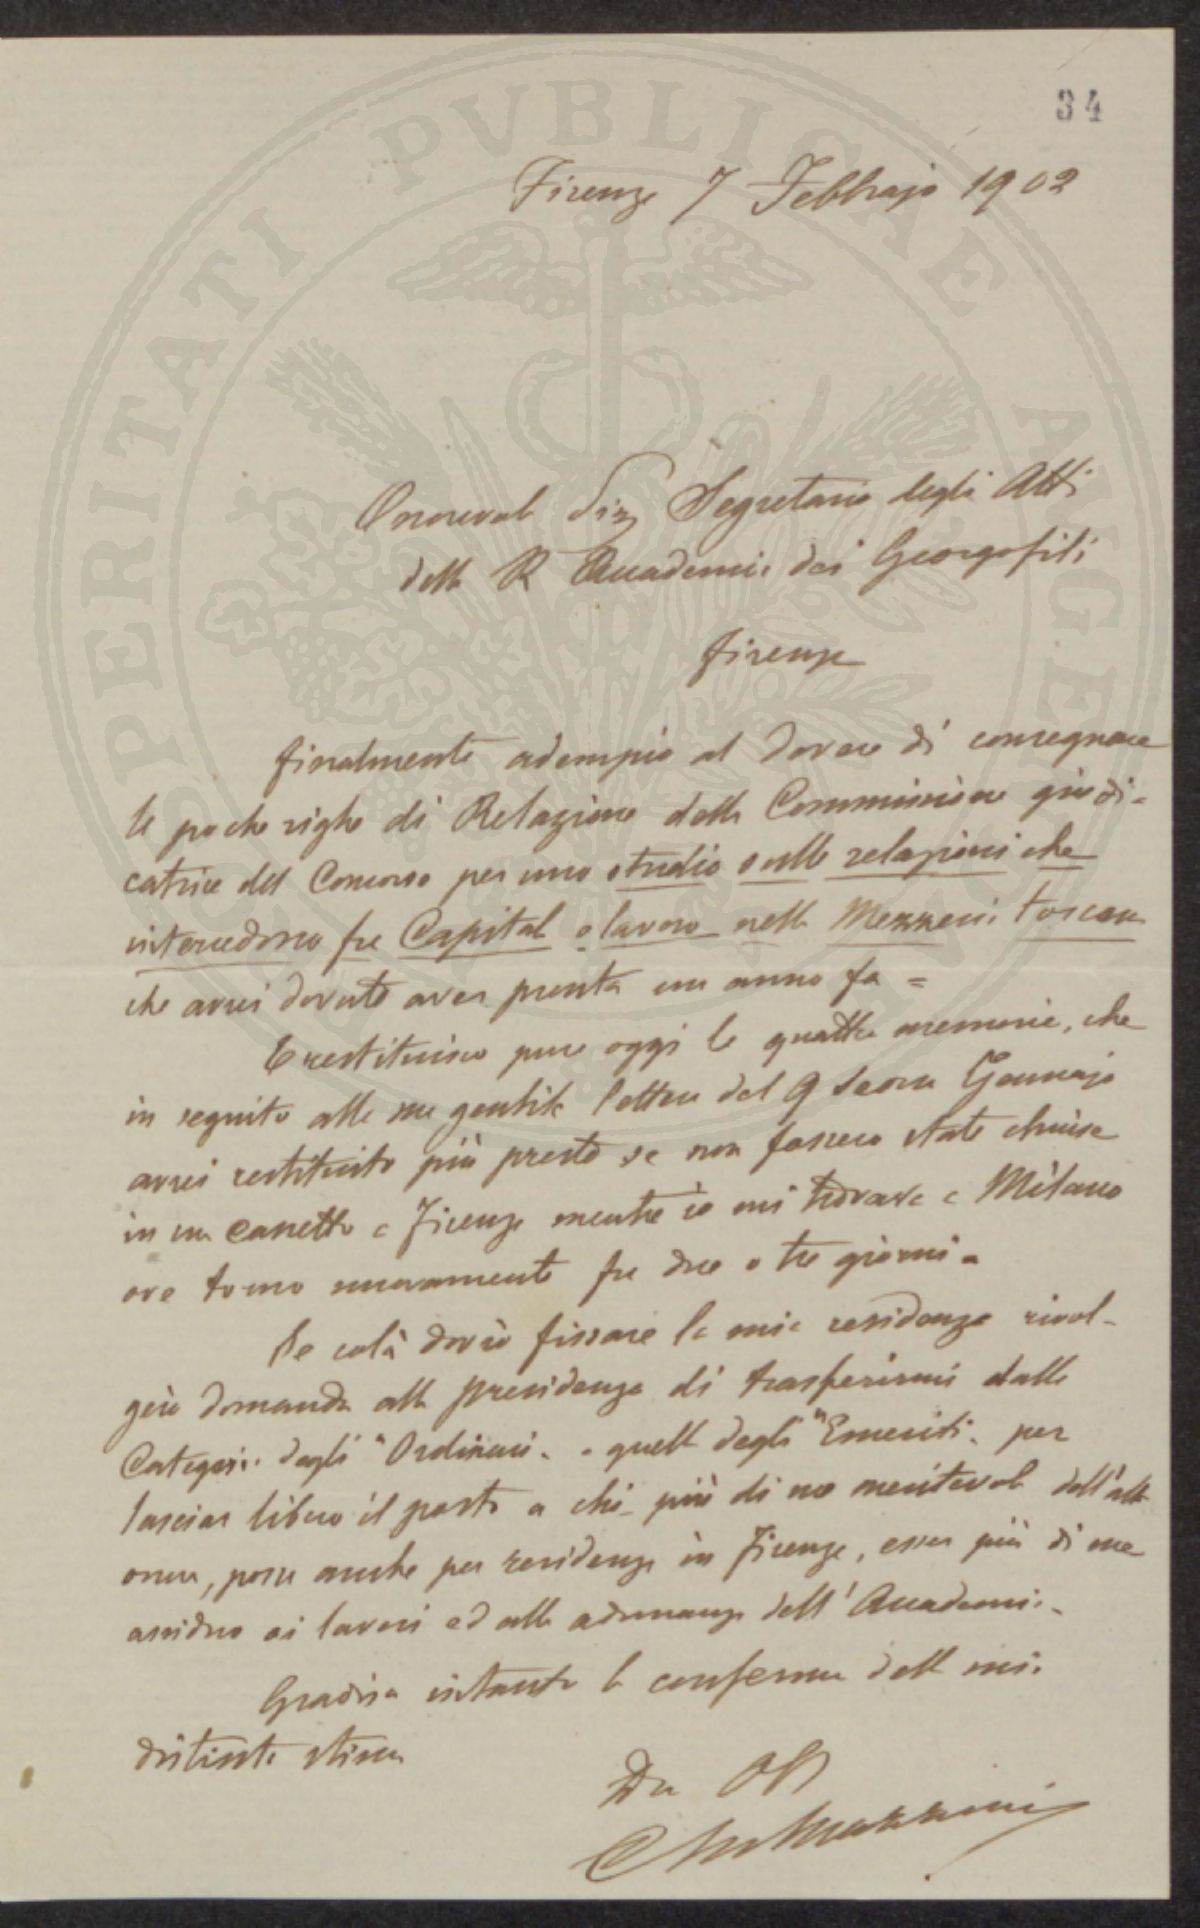 34
PROSPERITATI PVBLICAE AVGENDAE
Firenze 7 Febbrajo 1902
Onorevole Sig Segretario degli Atti
della R Accademia dei Georgofili
Firenze
Finalmente adempio al dovere di consegnare
le poche righe di Relazione della Commissione giudi-
catrice del Concorso per uno studio sulle relazioni che
intercedono fra Capitale e lavoro nella Mezzeria toscana
che avrei dovuto aver pronta un anno fa =
E restituisco pure oggi le quattro memorie, che
in seguito alla sua gentile lettera del 9 Gennajo
avrei restituito più presto se non fossero state chiuse
in un cassetto a Firenze mentre io mi trovava a Milano
ove torno nuovamente fra due o tre giorni -
Se colà dovrò fissare la mia residenza rivol-
gerò domanda alla Presidenza di trasferirmi dalla
Categoria degli "Ordinari" a quella degli "Emeriti" per
lasciar libero il posto a chi più di me meritevole dell'alto
onore, possa anche per residenza in Firenze, esser più di me
assiduo ai lavori ed alle adunanze dell'Accademia -
Gradisca intanto la conferma della mia
distinta stima